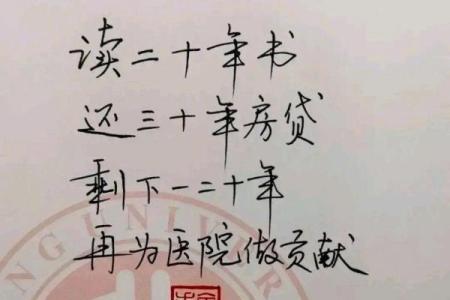 读二十年书
还三十年房贷
剩下一二十年
再为医院做贡献
NG UNIVER